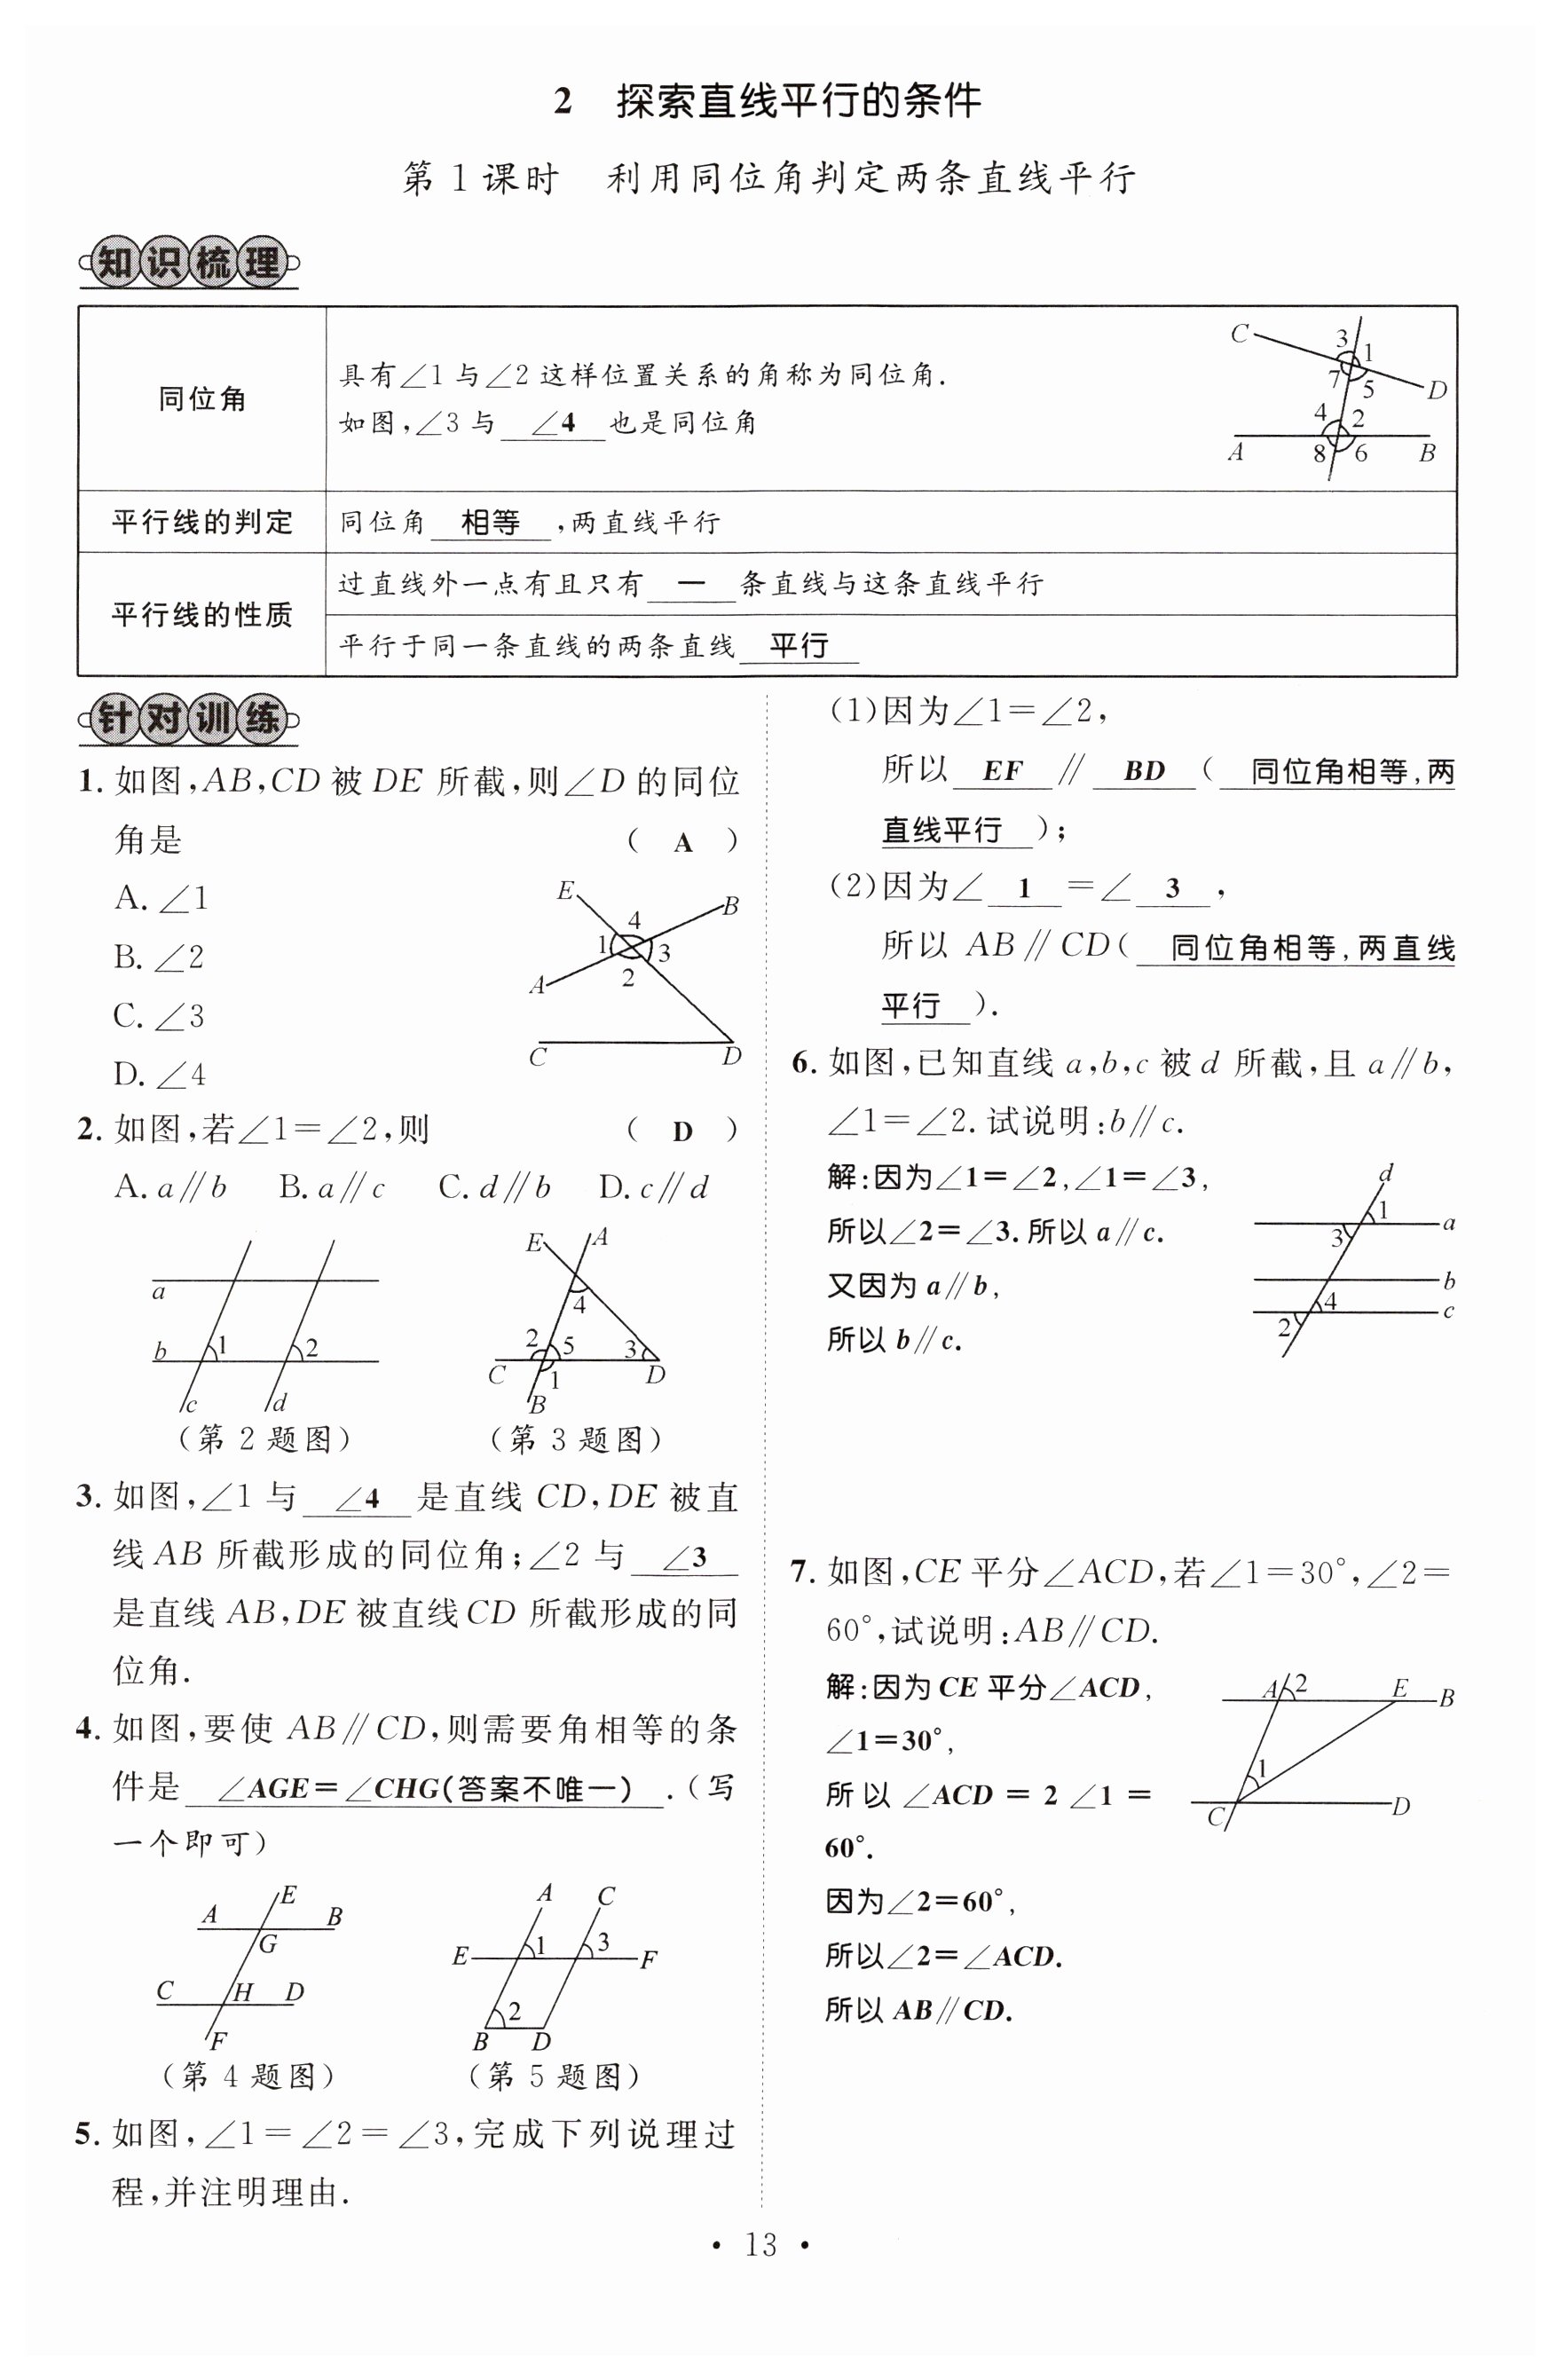 2 探索直线平行的条件
第 1 课时 利用同位角判定两条直线平行
知识梳理
同位角
具有∠1 与∠2 这样位置关系的角称为同位角.
如图,∠3 与 ∠4 也是同位角
C 3 1 7 5 D
4 2
A 8 6 B
平行线的判定
同位角 相等 ,两直线平行
平行线的性质
过直线外一点有且只有 一 条直线与这条直线平行
平行于同一条直线的两条直线 平行
针对训练
1. 如图,AB,CD 被 DE 所截,则∠D 的同位
角是 ( A )
A. ∠1
B. ∠2
C. ∠3
D. ∠4
E 4 B
1 3
A 2
C D
2. 如图,若∠1=∠2,则 ( D )
A. a∥b B. a∥c C. d∥b D. c∥d
a
b 1 2
c d
(第 2 题图)
E A
4
2 5 3
C 1 D
B
(第 3 题图)
3. 如图,∠1 与 ∠4 是直线 CD,DE 被直
线 AB 所截形成的同位角;∠2 与 ∠3
是直线 AB,DE 被直线 CD 所截形成的同
位角.
4. 如图,要使 AB∥CD,则需要角相等的条
件是 ∠AGE=∠CHG(答案不唯一) .(写
一个即可)
E
A B
G
C H D
F
(第 4 题图)
A C
E 1 3 F
2
B D
(第 5 题图)
5. 如图,∠1=∠2=∠3,完成下列说理过
程,并注明理由.
(1)因为∠1=∠2,
所以 EF ∥ BD ( 同位角相等,两
直线平行 );
(2)因为∠ 1 =∠ 3 ,
所以 AB∥CD( 同位角相等,两直线
平行 ).
6. 如图,已知直线 a,b,c 被 d 所截,且 a∥b,
∠1=∠2. 试说明:b∥c.
解:因为∠1=∠2,∠1=∠3,
所以∠2=∠3.所以 a∥c.
又因为 a∥b,
所以 b∥c.
d
1
a
3
b
4
c
2
7. 如图,CE 平分∠ACD,若∠1=30°,∠2=
60°,试说明:AB∥CD.
解:因为 CE 平分∠ACD,
∠1=30°,
所以 ∠ACD = 2 ∠1 =
60°.
因为∠2=60°,
所以∠2=∠ACD.
所以 AB∥CD.
A 2 E B
1
C D
• 13 •